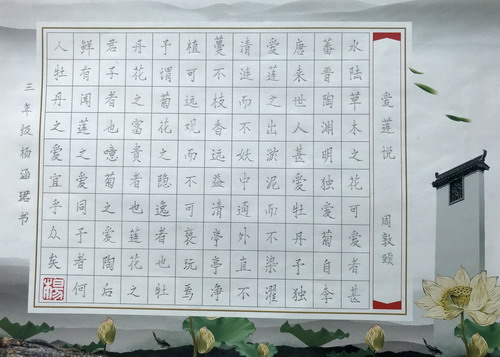 爱莲说 周敦颐
水陆草木之花可爱者甚
蕃晋陶渊明独爱菊自李
唐来世人甚爱牡丹予独
爱莲之出淤泥而不染濯
清涟而不妖中通外直不
蔓不枝香远益清亭亭净
植可远观而不可亵玩焉
予谓菊花之隐逸者也牡
丹花之富贵者也莲花之
君子者也噫菊之爱陶后
鲜有闻莲之爱同予者何
人牡丹之爱宜乎众矣
楊
三年级杨涵琚书